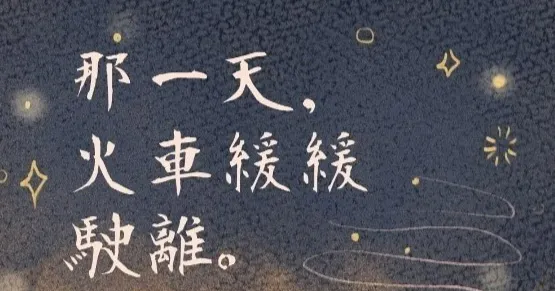 那一天，
火車緩緩
駛離。